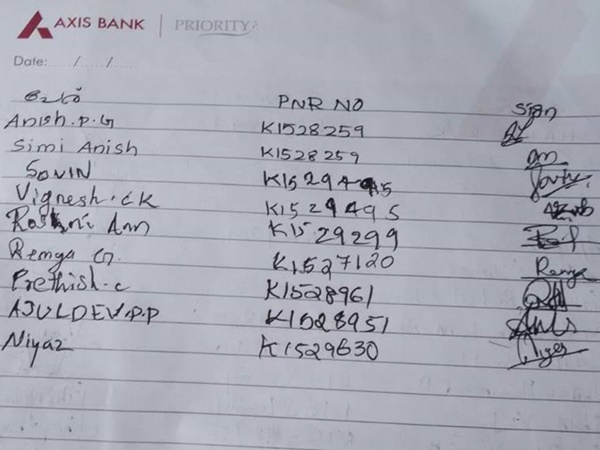 AXIS BANK PRIORITY
Date: / /
പേര് PNR NO Sign
Anish.P.G K1528259
Simi Anish K1528259
SOVIN K1529495
Vignesh.CK K1529495
Roshni Ann K1529299
Remya G. K1527120 Remya
Prethish.C K1528961
AJULDEV.P.P K1528951
Niyaz K1529630 Niyaz